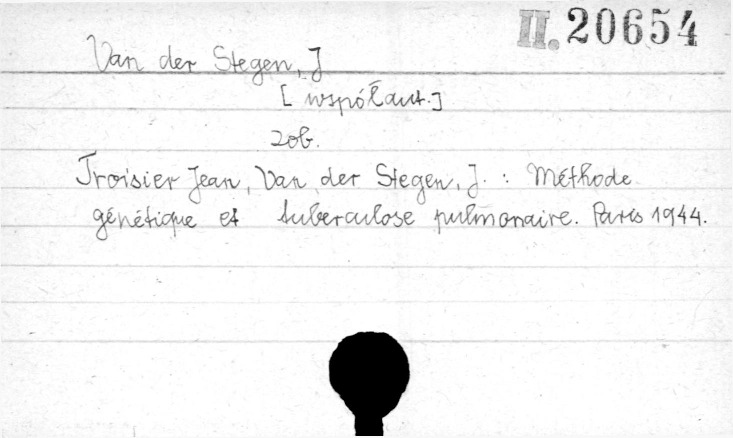 II. 20654
Van der Stegen, J
[współaut.]
zob.
Troisier Jean, Van der Stegen, J. : Méthode
génétique et tuberculose pulmonaire. Paris 1944.